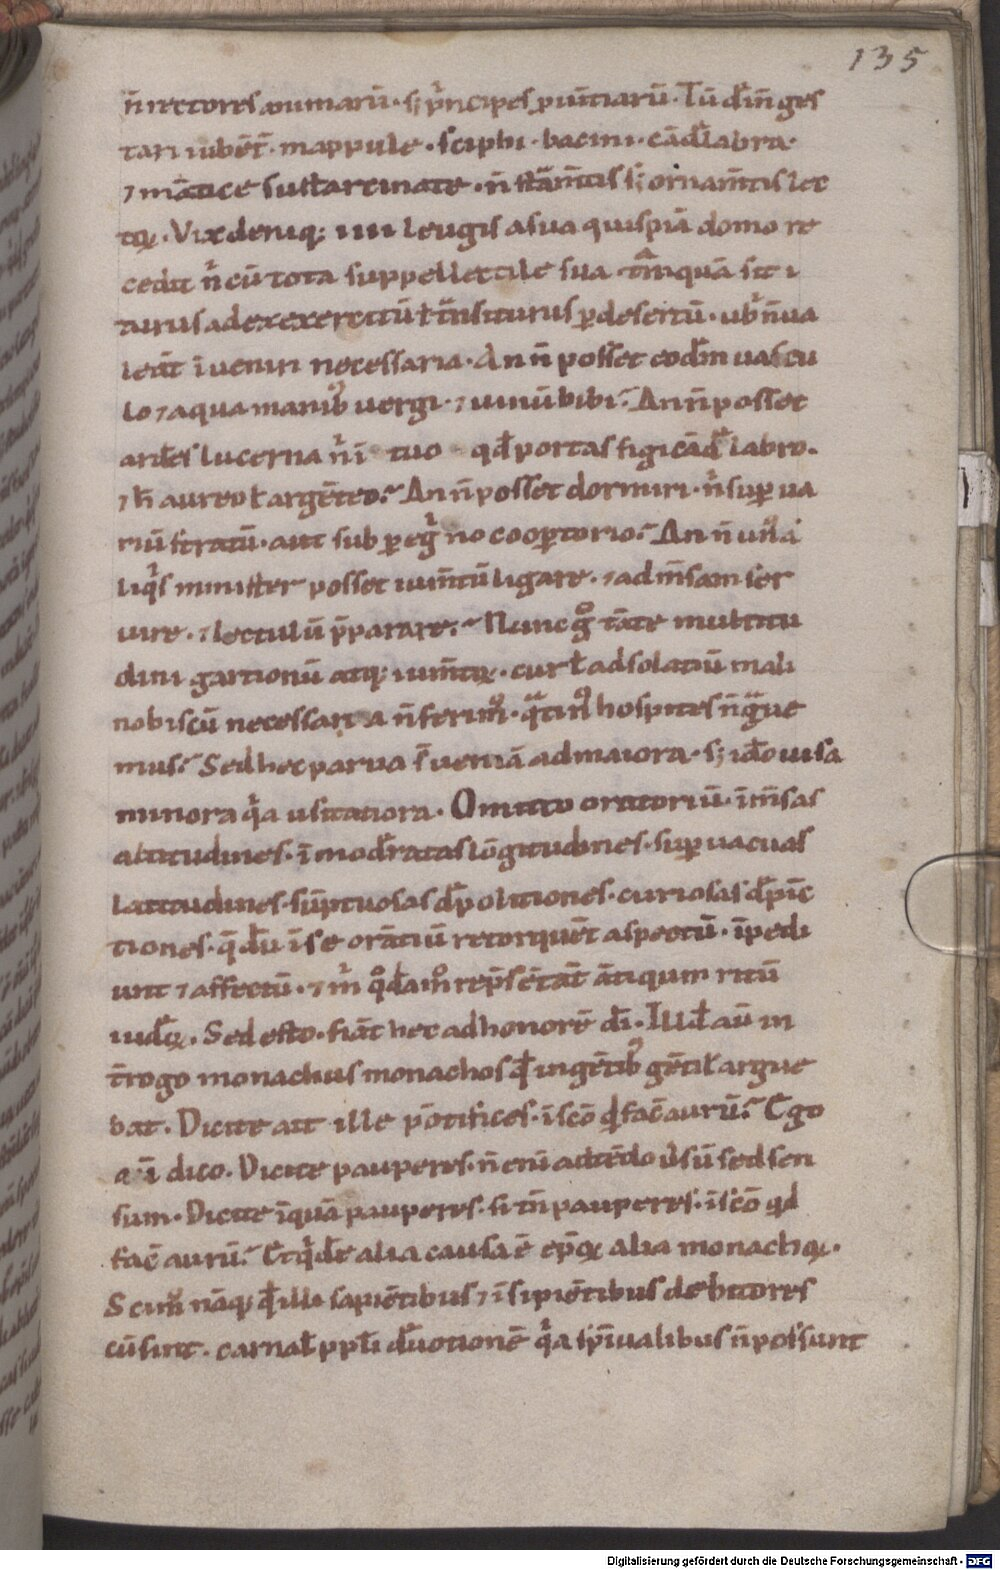 135
n̄ rectores animarū · s; p̃ncipes ꝓuītiarū · Tū d̄in̄ ges
tari iubēt̄ · mappule · sciphi · bacini · cād̄labra ·
⁊ mātice suffarcinate · n̄ strām̄tis s; ornam̄tis lec
toꝝ · Vix deniq; iiii leugis a sua quispiā domo re
cedit n̄ cū tota suppellectile sua tāmquā sit i
turus ad exexercitū ł trāsiturus ꝑ desertū · ubi n̄ ua
leāt īueniri necessaria · An n̄ posset eod̄m uascu
lo ⁊ aqua manibꝰ uergi · ⁊ uinū bibi? An n̄ posset
ard̄es lucerna n̄ ī tuo qd̄ portas figi cād̄labro ·
⁊ h̄ aureo ł argēteo? An n̄ posset dormiri · n̄ suꝑ ua
riū stratū · aut sub ꝑegⁱno cooꝑtorio? An n̄ unꝰ a
liqⁱs minister posset ium̄tū ligare · ⁊ ad m̄sam ser
uire · ⁊ lectulū p̄parare? Nunc gͦ tāte multitu
dini gartionū atq; ium̄toꝝ · cur ł ad solatiū mali
nobiscū necessaria n̄ ferimꝰ · qᵃtinꝰ hospites n̄ gᵃue
mus? Sed hec parua s̄ ueniā ad maiora · s; iđo uisa
minora qⁱa usitatiora · Omitto oratoriū · īm̄sas
altitudines · īmod̄ratas lōgitudines · suꝑuacuas
latitudines · sūptuosas d̄politiones · curiosas d̄pic
tiones · q̄ dū ī se orātiū retorquēt aspectū · īpedi
unt ⁊ affectū · ⁊ m̄ qͦdāmͦ rep̄sētāt ātiqum ritū
iud̄oꝝ · Sed esto · fiāt hec ad honorē d̄i · Illd̄ aū in
t̄rogo monachus monachos qd̄ in gētibꝰ gētil̄ argue
bat · Dicite ait ille pōtifices · ī scō qd̄ fac̄ aurū? Ego
aū dico · Dicite pauperes · n̄ enī attēdo ūsū sed sen
sum · Dicite īquā pauperes · si tn̄ pauperes · ī scō qd
fac̄ aurū? Et qⁱd̄e alia causa ē ep̄oꝝ alia monachoꝝ ·
Scimꝰ nāq; qd̄ illi sapiētibus ⁊ īsipiētibus debitores
cū sint · carnal̄ ppl̄i d̄uotionē qⁱa sp̄ualibus n̄ possunt
Digitalisierung gefördert durch die Deutsche Forschungsgemeinschaft - DFG